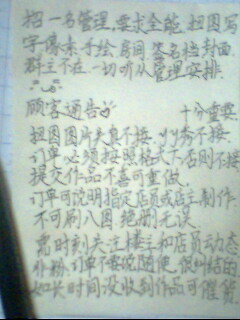 招一名管理,要求全能.扭图写
字像素.手绘房间 签名档封面.
群主不在一切听从管理安排.
顾客通告 十分重要
扭图图片失真不接.ヅヅ秀不接
订单必须按照格式下.否则不接
提交作品不喜可重做.
订单可说明指定店员或店主制作.
不可刷八图 绝删无误.
需时刻关注楼主和店员动态
订单不要说随便,很纠结的
如长时间没收到作品可催货